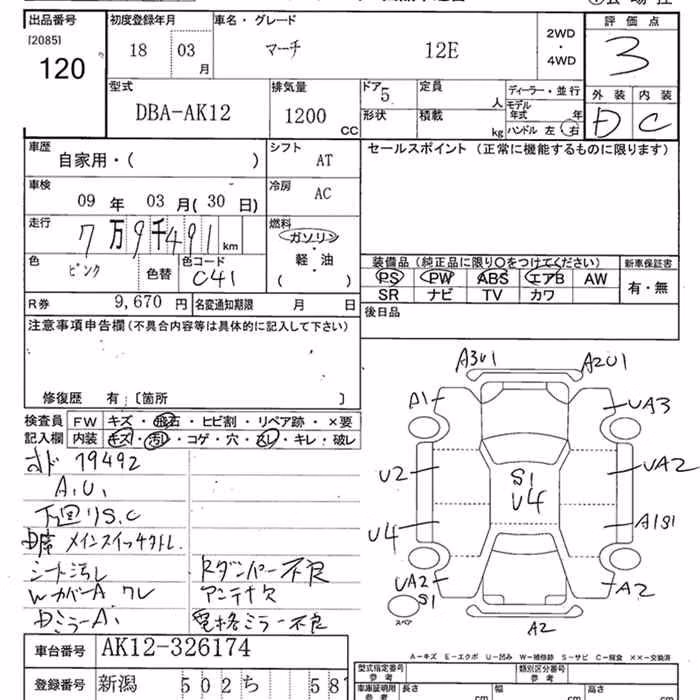 出品番号
[2085]
120
初度登録年月
18 03 月
車名・グレード
マーチ 12E
2WD
・
4WD
評価点
3
型式
DBA-AK12
排気量
1200 CC
ドア 5
形状
定員
人
積載
kg
ディーラー・並行
モデル
年式 年
ハンドル 左 右
外装 内装
D C
車歴
自家用・( )
シフト
AT
セールスポイント (正常に機能するものに限ります)
車検
09 年 03 月( 30 日)
冷房
AC
走行
7万9千491 km
燃料
ガソリン
軽・油
( )
色
ピンク
色替
色コード
C41
装備品(純正品に限り○をつけてください)
PS PW ABS エアB AW
SR ナビ TV カワ
新車保証書
有・無
R券 9,670 円
名変通知期限 月 日
後日品
注意事項申告欄(不具合内容等は具体的に記入して下さい)
修復歴 有:〔箇所 〕
検査員
記入欄
FW キズ・飛石・ヒビ割・リペア跡・×要
内装 キズ・汚レ・コゲ・穴・スレ・キレ・破レ
オド 79492
A.U.
下廻りS.C
D席 メインスイッチクトレ
シート汚レ
WカバーA ワレ
DミラーA.
Rダンパー不良
アンテナ欠
電格ミラー不良
A3U1 A2U1
A1 UA3
U2 UA2
S1
U4
U4 A1S1
UA2
S1
A2
A2
スペア
車台番号 AK12-326174
登録番号 新潟 502 ち 581
A-キズ E-エクボ U-凹ミ W-補修跡 S-サビ C-腐食 ××-交換済
型式指定番号
参考
類別区分番号
参考
車庫証明用
参考
長さ cm
幅 cm
高さ cm